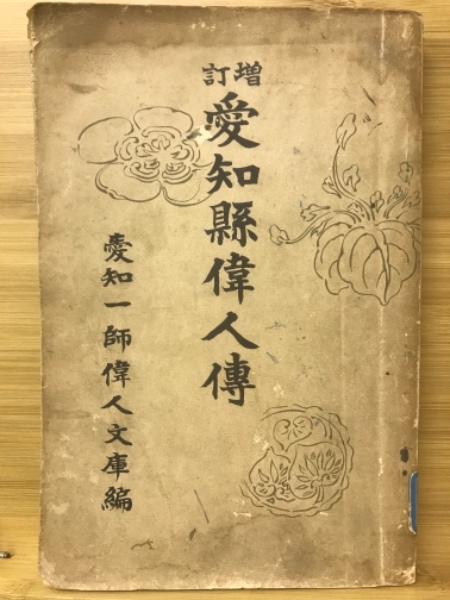 増訂
愛知縣偉人傳
愛知一師偉人文庫編